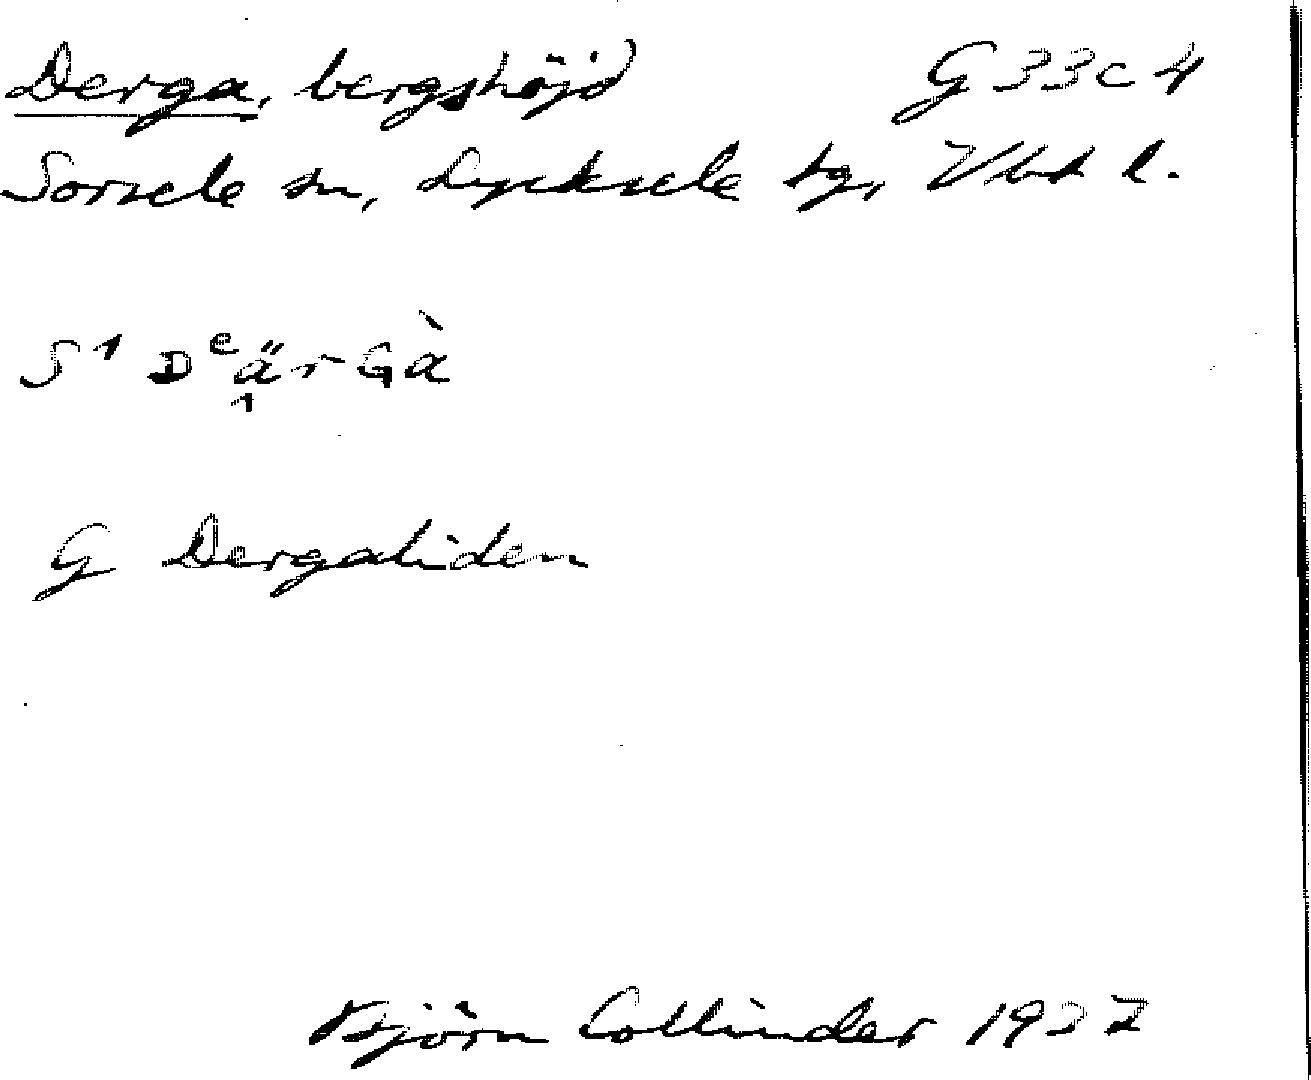 Derga, bergshöjd G 33 c 4
Sorsele sn, Lycksele tg, Vbt l.
S1 DeärGà
G Dergaliden
Björn Collinder